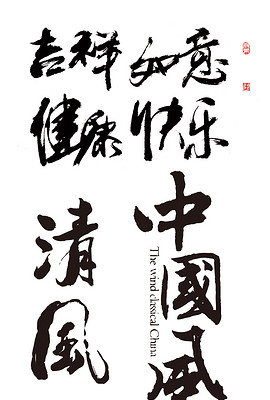 吉祥如意
健康快乐
清风
中國风
The wind classical China